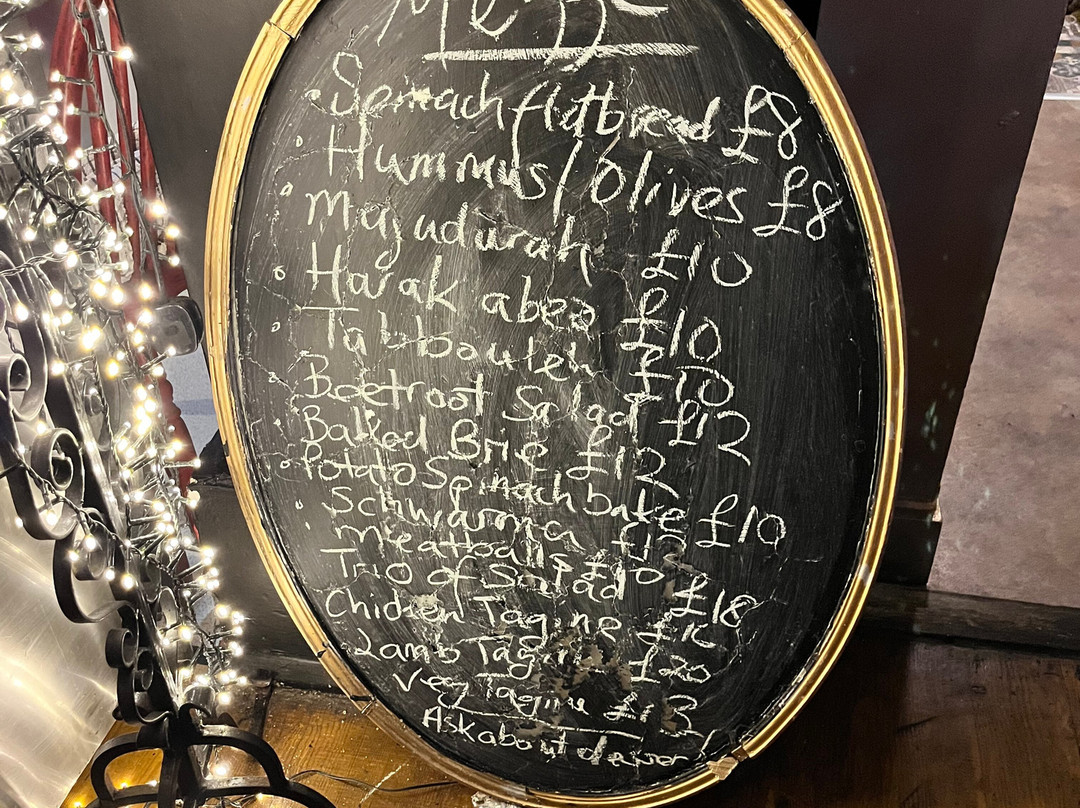 Mezze
Spinach flatbread £8
Hummus/Olives £8
Majudurah £10
Harak abea £10
Tabbouleh £10
Beetroot Salad £12
Baked Brie £12
Potato Spinach bake £10
Schwarma
Meatballs £10
Trio of Salad £18
Chicken Tagine
Lamb Tagine £20
Veg Tagine £13
Ask about